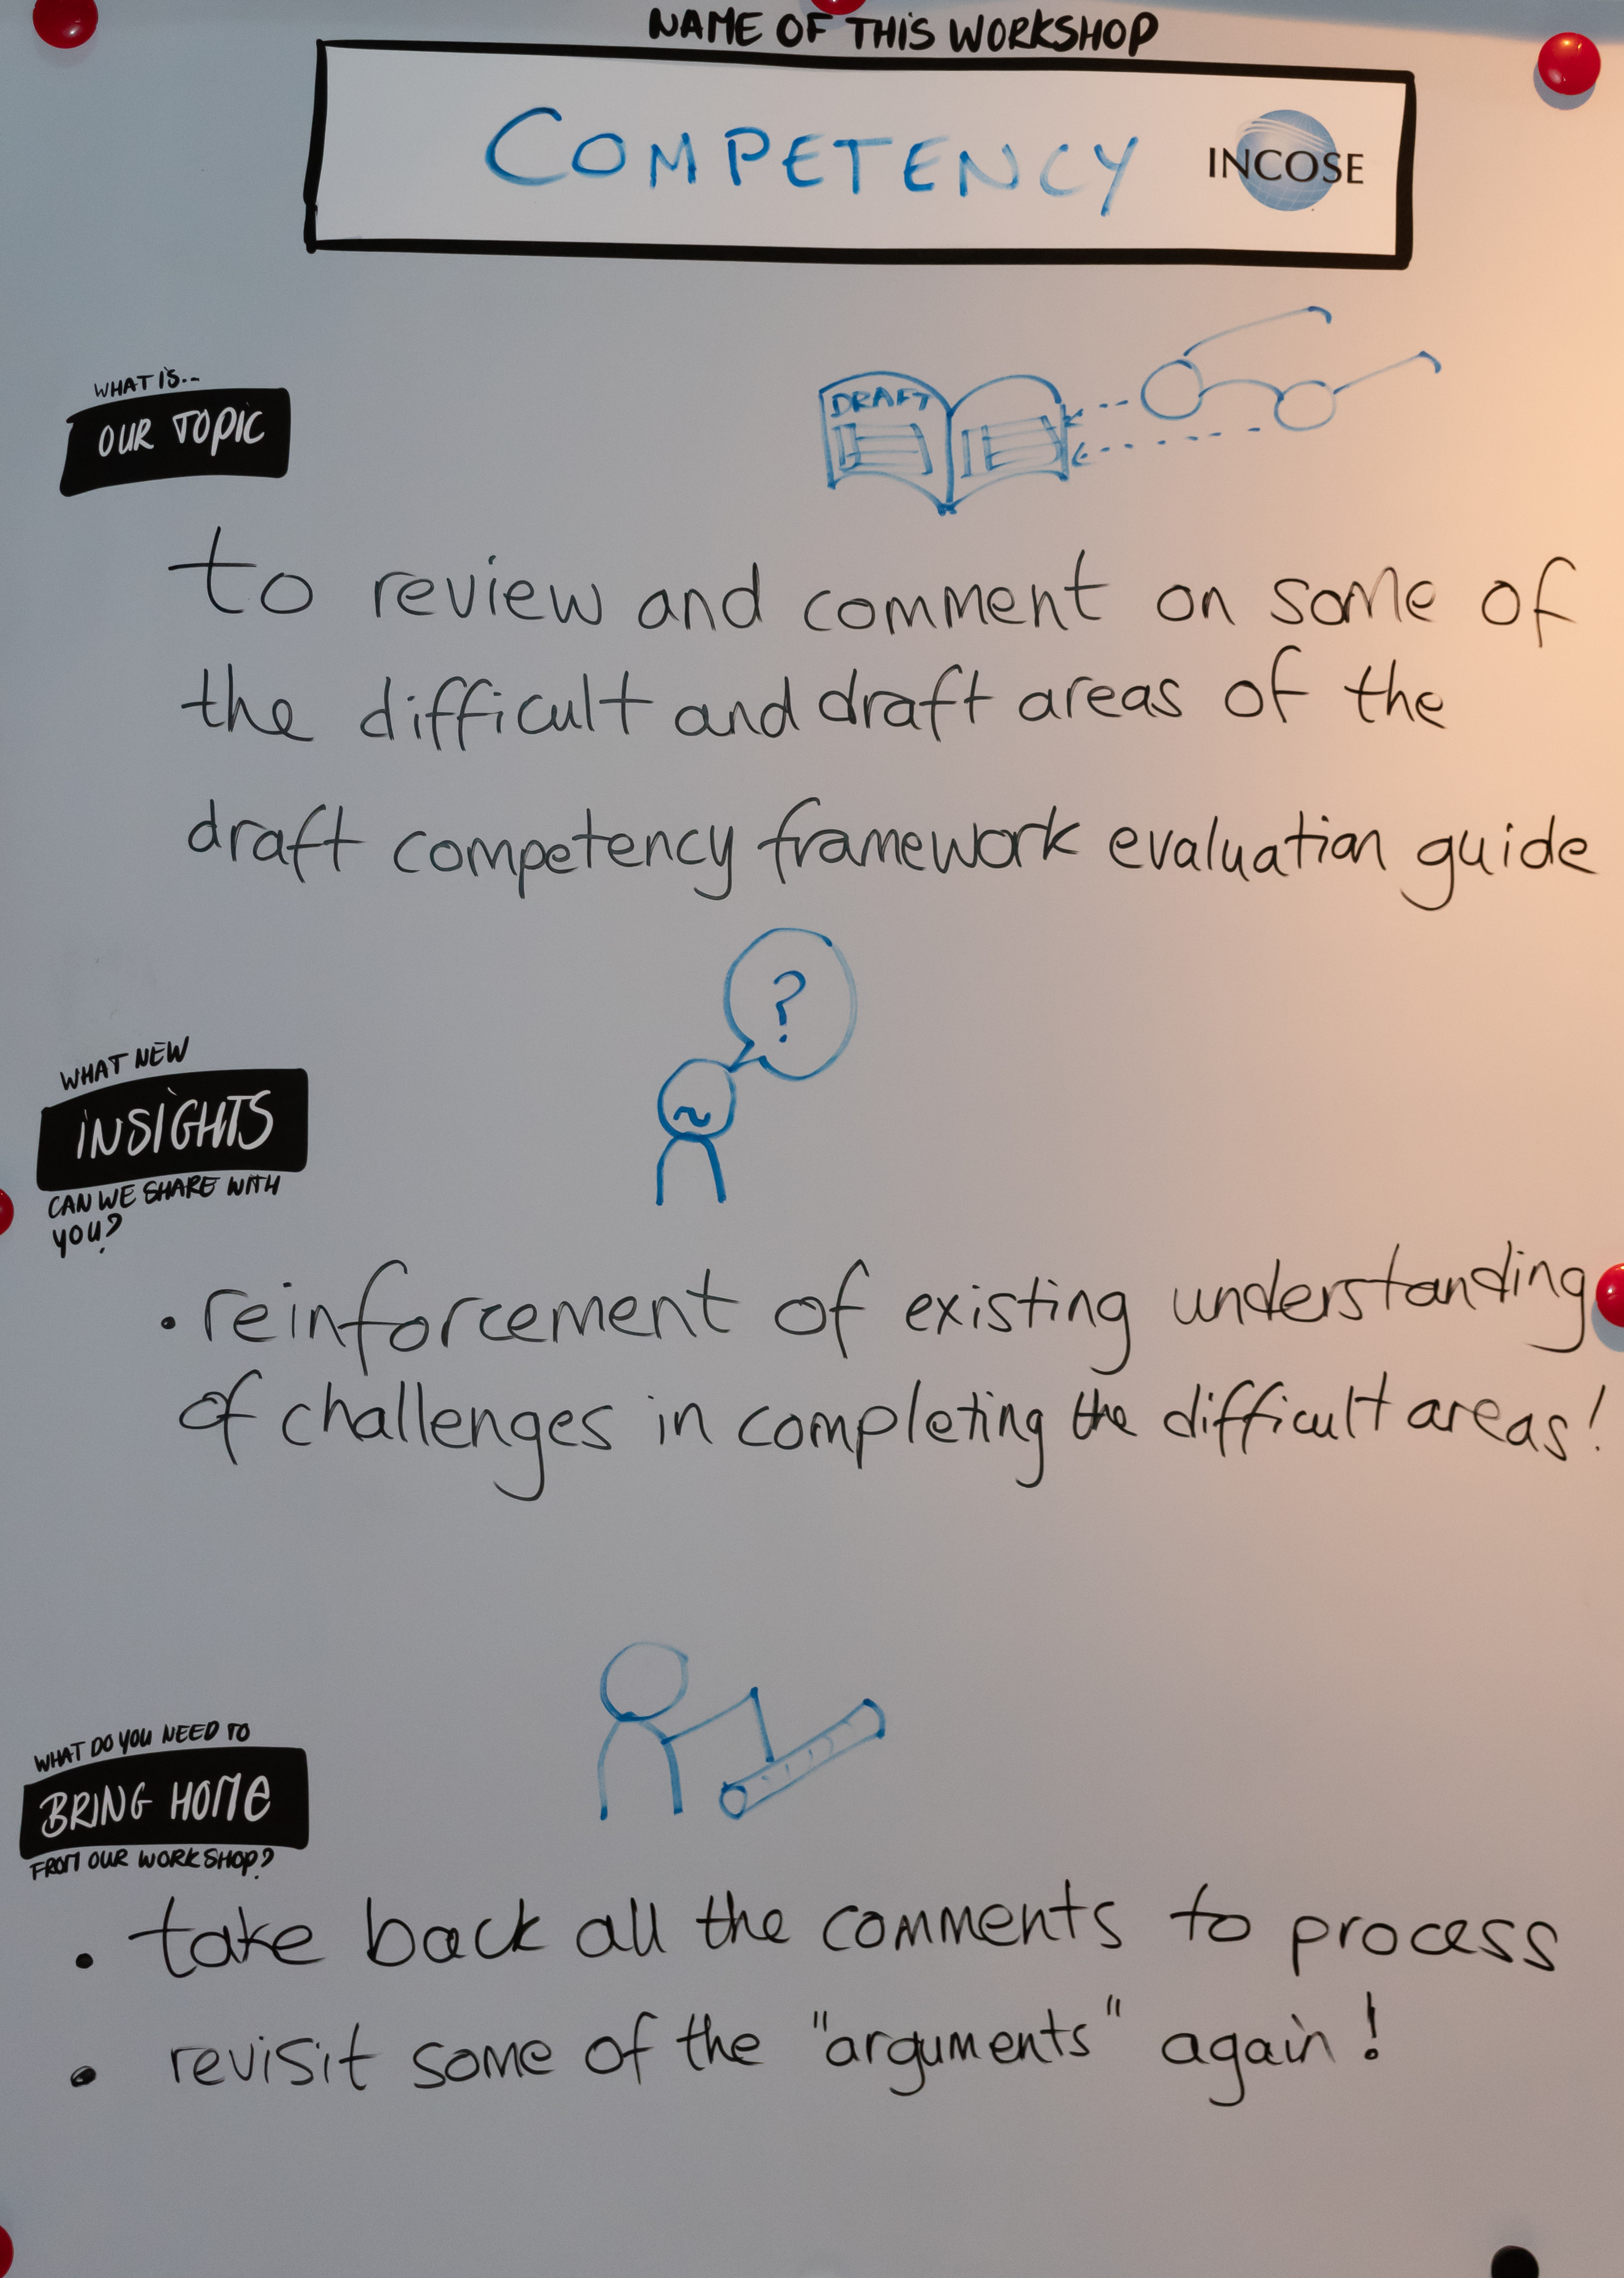 NAME OF THIS WORKSHOP
COMPETENCY
INCOSE
WHAT IS..
OUR TOPIC
DRAFT
to review and comment on some of
the difficult and draft areas of the
draft competency framework evaluation guide
?
WHAT NEW
INSIGHTS
CAN WE SHARE WITH
YOU?
• reinforcement of existing understanding
of challenges in completing the difficult areas!
WHAT DO YOU NEED TO
BRING HOME
FROM OUR WORKSHOP?
• take back all the comments to process
• revisit some of the "arguments" again!